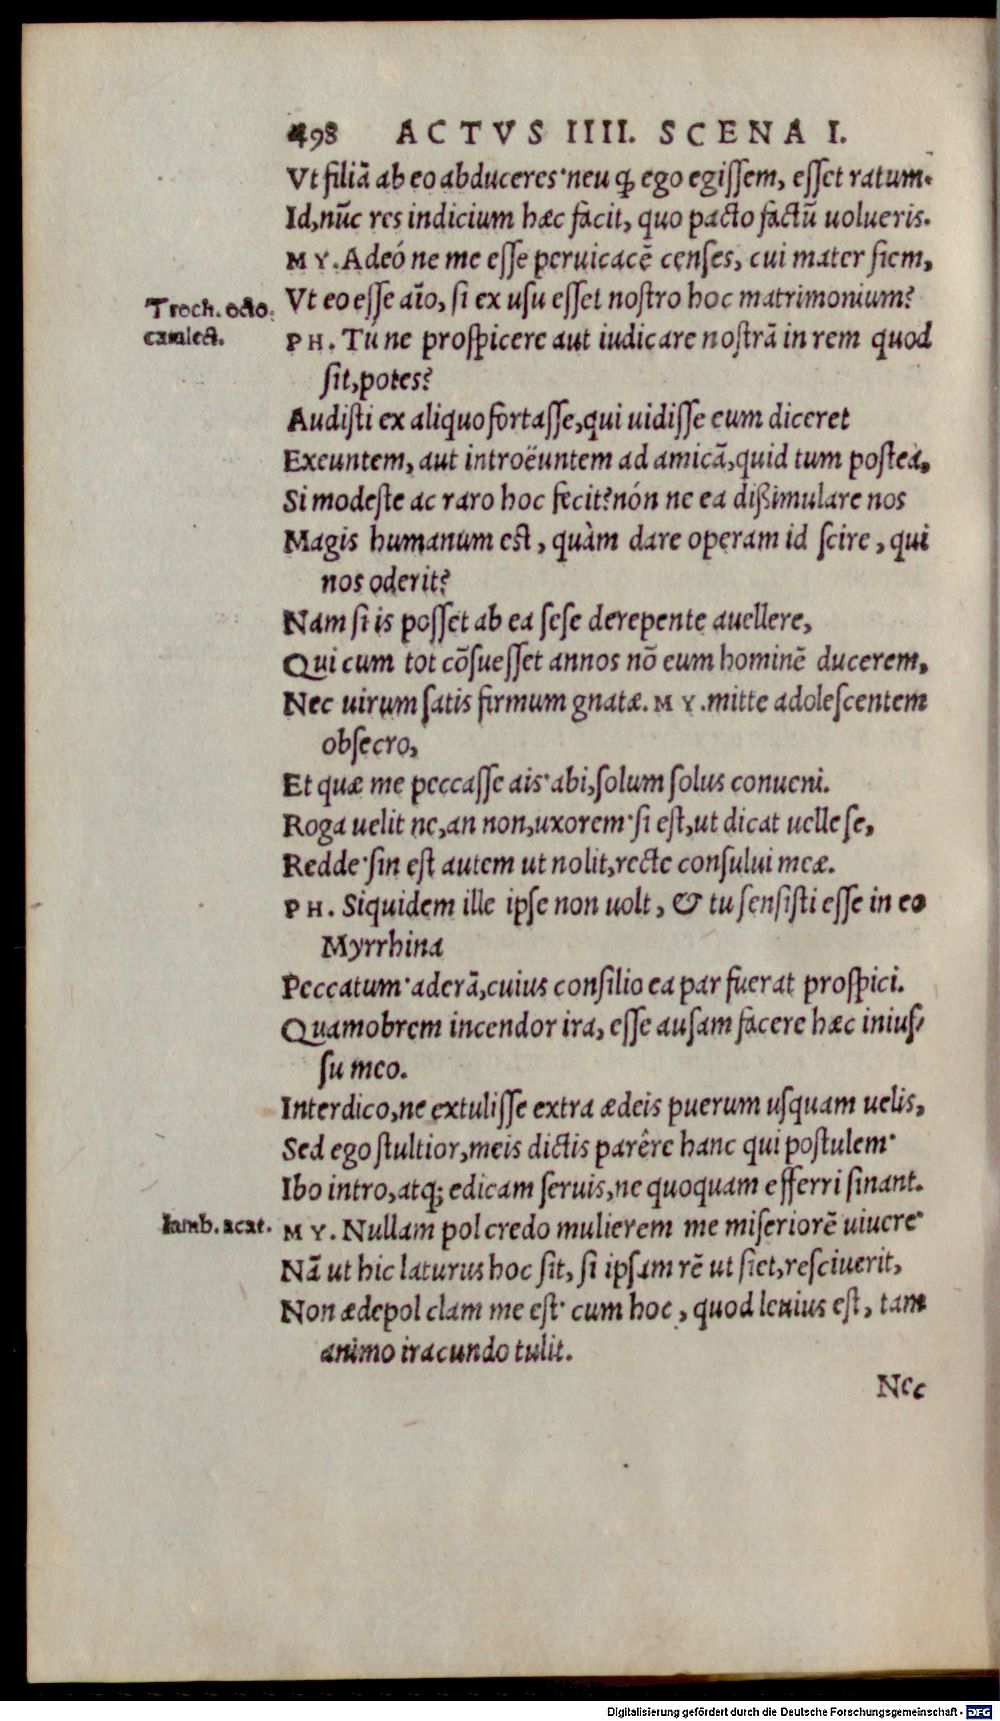 498 ACTVS IIII. SCENA I.
Vt filiā ab eo abduceres·neu ꝗ ego egissem, esset ratum.
Id, nūc res indicium hæc facit, quo pacto factū uolueris.
MY. Adeó ne me esse peruicacē censes, cui mater siem,
Troch. octo.
Vt eo esse aīo, si ex usu esset nostro hoc matrimonium?
catalect.
PH. Tú ne prospicere aut iudicare nostrā in rem quod
sit, potes?
Audisti ex aliquo fortasse, qui uidisse eum diceret
Exeuntem, aut introëuntem ad amicā, quid tum postea,
Si modeste ac raro hoc fecit? nón ne ea dißimulare nos
Magis humanum est, quàm dare operam id scire, qui
nos oderit?
Nam si is posset ab ea sese derepente auellere,
Qui cum tot cōsuesset annos nō eum hominē ducerem,
Nec uirum satis firmum gnatæ. MY. mitte adolescentem
obsecro,
Et quæ me peccasse ais·abi, solum solus conueni.
Roga uelit ne, an non, uxorem·si est, ut dicat uelle se,
Redde·sin est autem ut nolit, recte consului meæ.
PH. Siquidem ille ipse non uolt, & tu sensisti esse in eo
Myrrhina
Peccatum·aderā, cuius consilio ea par fuerat prospici.
Quamobrem incendor ira, esse ausam facere hæc inius-
su meo.
Interdico, ne extulisse extra ædeis puerum usquam uelis,
Sed ego stultior, meis dictis parêre hanc qui postulem·
Ibo intro, atq; edicam seruis, ne quoquam efferri sinant.
Iamb. acat.
MY. Nullam pol credo mulierem me miseriorē uiuere·
Nā ut hic laturus hoc sit, si ipsam rē ut siet, resciuerit,
Non ædepol clam me est· cum hoc, quod leuius est, tam
animo iracundo tulit.
Nec
Digitalisierung gefördert durch die Deutsche Forschungsgemeinschaft - DFG